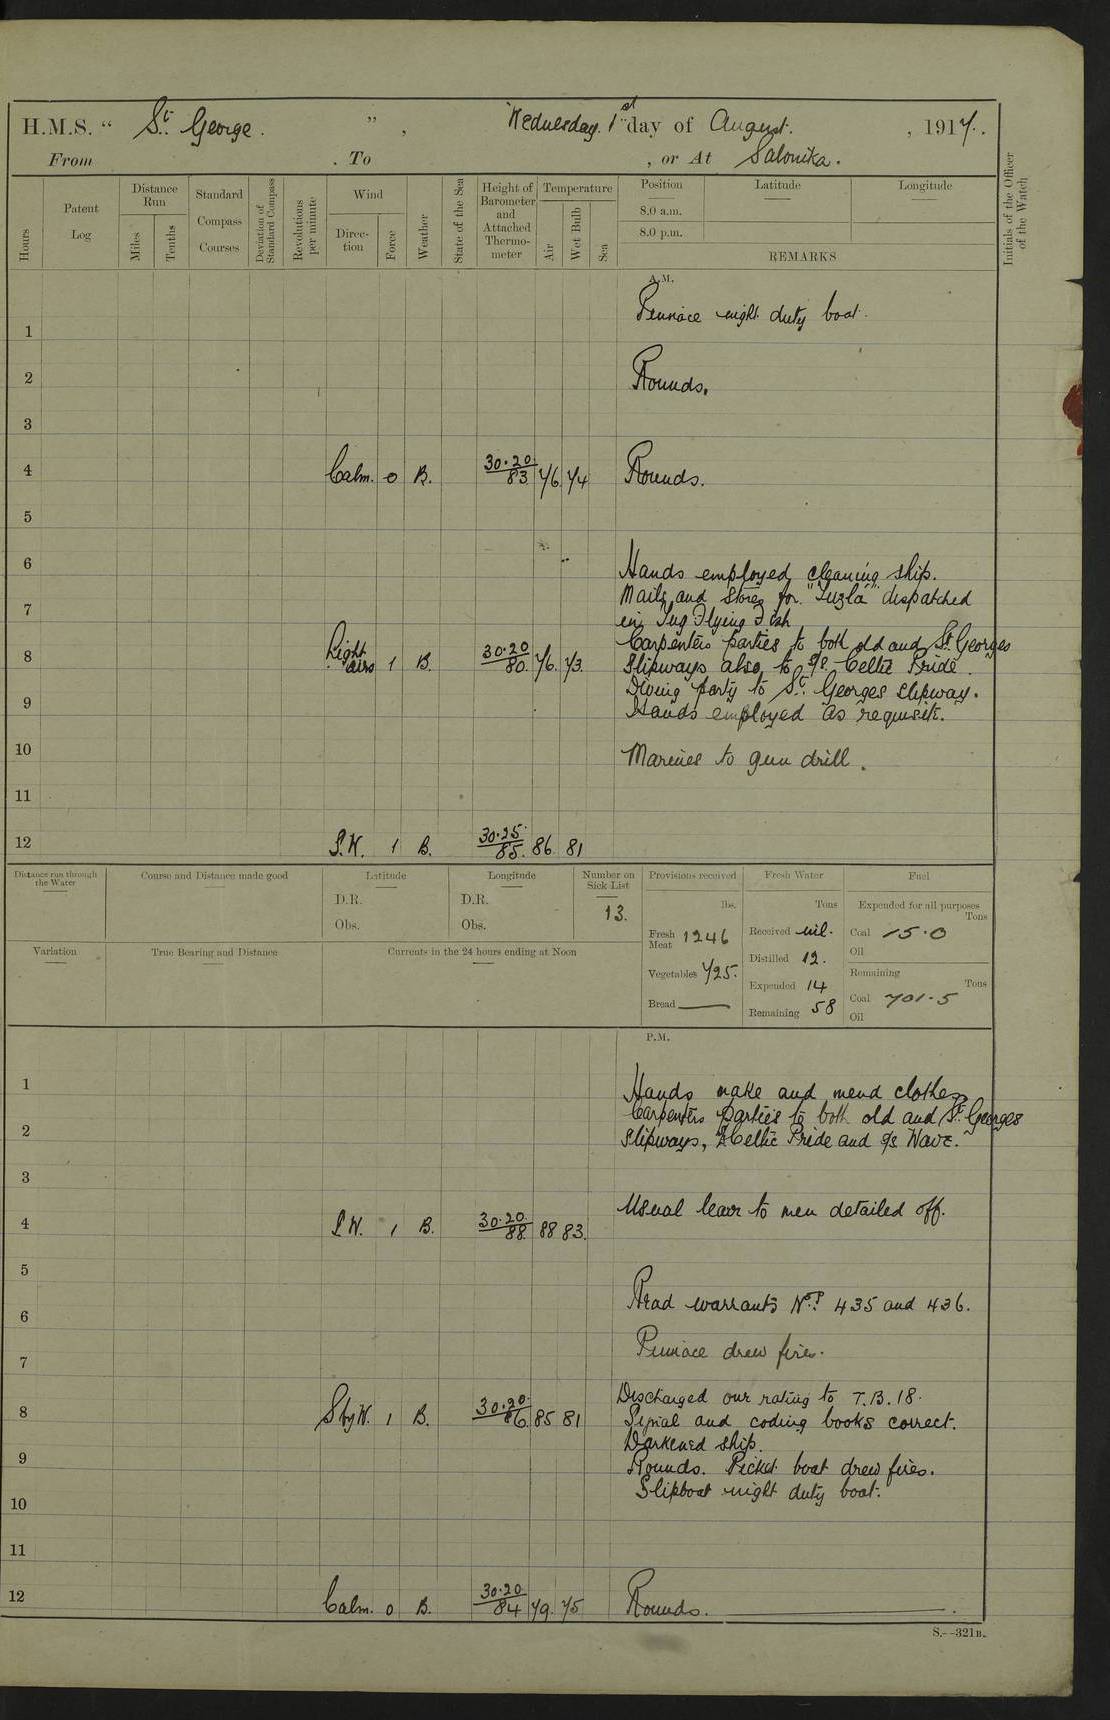 H.M.S. “ St. George. ” , Wednesday. 1st day of August. , 1917.
From . To , or At Salonika.
Hours
Patent Log
Distance Run
Miles
Tenths
Standard Compass Courses
Deviation of Standard Compass
Revolutions per minute
Wind
Direction
Force
Weather
State of the Sea
Height of Barometer and Attached Thermometer
Temperature
Air
Wet Bulb
Sea
Position
8.0 a.m.
8.0 p.m.
Latitude
Longitude
REMARKS
Initials of the Officer of the Watch
A.M.
Pinnace night duty boat.
1
2 Rounds.
3
4 Calm. 0 B. 30.20 83 76 74 Rounds.
5
6 Hands employed cleaning ship.
Mails and Stores for "Tuzla" dispatched
7 in Tug Flying Fish
Carpenters parties to both old and St Georges
8 Light airs 1 B. 30.20 80. 76. 73. Slipways also to S/S Celtic Pride.
Diving party to St. Georges slipway.
9 Hands employed as requisite.
10 Marines to gun drill.
11
12 S.W. 1 B. 30.25 85. 86 81
Distance run through the Water
Course and Distance made good
Latitude
D.R.
Obs.
Longitude
D.R.
Obs.
Number on Sick List
13.
Variation
True Bearing and Distance
Currents in the 24 hours ending at Noon
Provisions received
lbs.
Fresh Meat 1246
Vegetables 725.
Bread —
Fresh Water
Tons
Received nil.
Distilled 12.
Expended 14
Remaining 58
Fuel
Expended for all purposes
Tons
Coal 15.0
Oil
Remaining
Tons
Coal 701.5
Oil
P.M.
1 Hands make and mend clothes
Carpenters parties to both old and St. Georges
2 Slipways, Celtic Pride and S/S Wave.
3
Usual leave to men detailed off.
4 S.W. 1 B. 30.20 88. 88 83.
5
6 Read warrants Nos. 435 and 436.
7 Pinnace drew fires.
Discharged one rating to T.B. 18.
8 SbyW. 1 B. 30.20 86. 85 81 Signal and coding books correct.
Darkened ship.
9 Rounds. Picket boat drew fires.
Slipboat night duty boat.
10
11
12 Calm. 0 B. 30.20 84 79. 75 Rounds.
S.—321B.